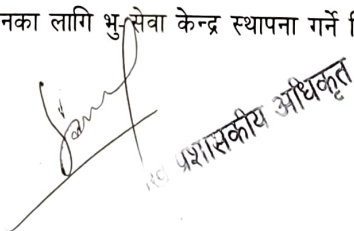 नका लागि भु-सेवा केन्द्र स्थापना गर्ने
प्रशासकीय अधिकृत